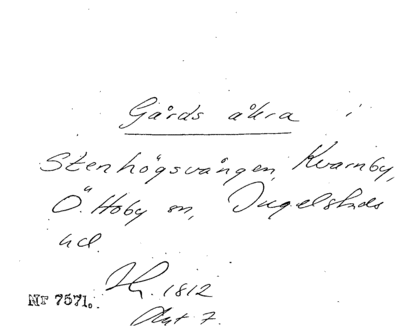 Gårds åkra i
Stenhögsvången, Kvarnby,
Ö. Hoby sn, Ingelstads
hd.
1812
Akt 7.
Nr 7571.